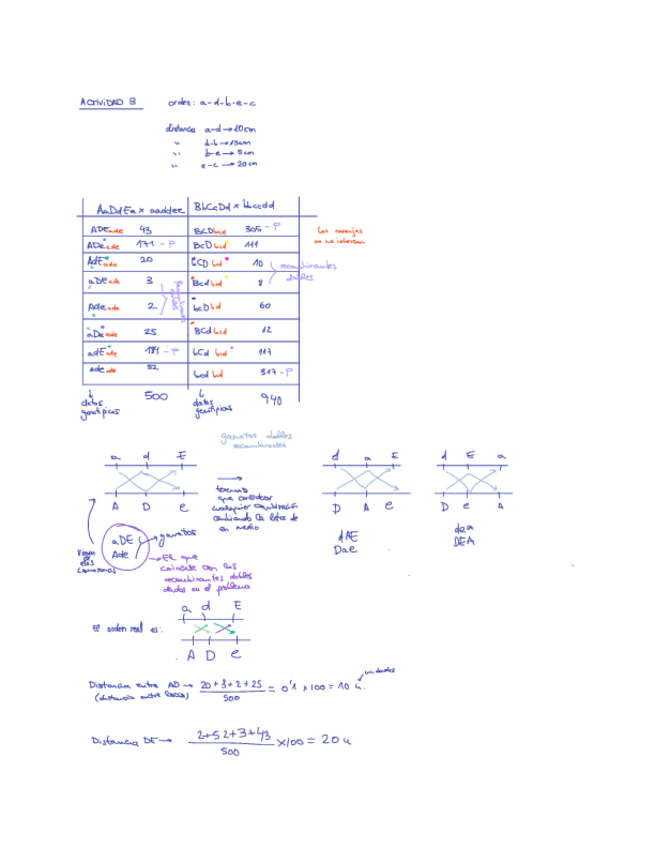 ACTIVIDAD 3 orden: a-d-b-e-c
distancia a-d → 10cm
" d-b → 15cm
" b-e → 5cm
" e-c → 20cm
AaDdEe x aaddee BbCcDd x bbccdd
ADE ade 43 BCD bcd 305 - P
ADe ade 171 - P BcD bcd 111
AdE ade 20 bCD bcd 10 recombinantes dobles
aDE ade 3 Bcd bcd 8
Ade ade 2 bcD bcd 60
aDe ade 25 BCd bcd 12
adE ade 184 - P bCd bcd 117
ade ade 52 bcd bcd 317 - P
Las naranjas
no me interesan
datos 500 datos 940
genotípicos fenotípicos
gametos dobles
recombinantes
a d E
A D e
tenemos
que considerar
cualquier combinación
cambiando la letra de
en medio
d a E
D A e
d E a
D e A
aDE gametos
Ade
dAE
Dae
dea
DEA
Vienen
de los
El que
coincide con los
recombinantes dobles
dados en el problema
a d E
El orden real es:
A D e
Distancia entre AD → 20+3+2+25 / 500 = 0'1 x 100 = 10 u. unidades
(distancia entre locus)
Distancia DE → 2+52+3+43 / 500 x 100 = 20 u